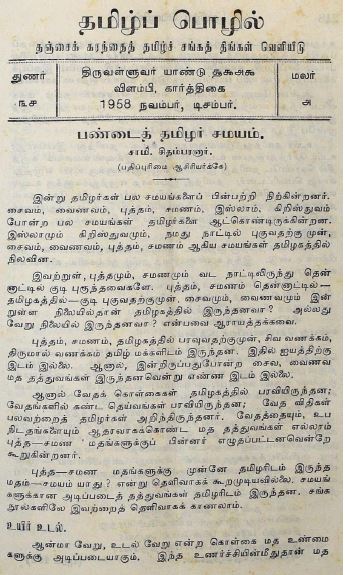 தமிழ்ப் பொழில்
தஞ்சைக் கரந்தைத் தமிழ்ச் சங்கத் திங்கள் வெளியீடு
துணர்
௩௪
திருவள்ளுவர் யாண்டு ௧௯௮௯
விளம்பி, கார்த்திகை
1958 நவம்பர், டிசம்பர்.
மலர்
௮
பண்டைத் தமிழர் சமயம்.
சாமி. சிதம்பரனார்.
(பதிப்புரிமை ஆசிரியர்க்கே)
இன்று தமிழர்கள் பல சமயங்களைப் பின்பற்றி நிற்கின்றனர்.
சைவம், வைணவம், புத்தம், சமணம், இஸ்லாம், கிறிஸ்துவம்
போன்ற பல சமயங்கள் தமிழர்களை ஆட்கொண்டிருக்கின்றன.
இஸ்லாமும் கிறிஸ்துவமும், நமது நாட்டில் புகுவதற்கு முன்,
சைவம், வைணவம், புத்தம், சமணம் ஆகிய சமயங்கள் தமிழகத்தில்
நிலவின.
இவற்றுள், புத்தமும், சமணமும் வட நாட்டிலிருந்து தென்
னாட்டில் குடி புகுந்தவைகளே. புத்தம், சமணம் தென்னாட்டில்—
தமிழகத்தில்—குடி புகுவதற்குமுன், சைவமும், வைணவமும் இன்
றுள்ள நிலையில்தான் தமிழகத்தில் இருந்தனவா? அல்லது
வேறு நிலையில் இருந்தனவா? என்பவை ஆராயத்தக்கவை.
புத்தம், சமணம், தமிழகத்தில் பரவுவதற்குமுன், சிவ வணக்கம்,
திருமால் வணக்கம் தமிழ் மக்களிடம் இருந்தன. இதில் ஐயத்திற்கு
இடம் இல்லை. ஆனால், இன்றிருப்பதுபோன்ற சைவ, வைணவ
மத தத்துவங்கள் இருந்தனவென்று எண்ண இடம் இல்லை.
ஆனால் வேதக் கொள்கைகள் தமிழகத்தில் பரவியிருந்தன;
வேதங்களில் கண்ட தெய்வங்கள் பரவியிருந்தன; வேத விதிகள்
பலவற்றைத் தமிழர்கள் அறிந்திருந்தனர். வேதத்தையும், உப
நிடதங்களையும் ஆதாரமாகக்கொண்ட மத தத்துவங்கள் எல்லாம்
புத்த—சமண மதங்களுக்குப் பின்னர் எழுதப்பட்டனவென்றே
கூறுகின்றனர்.
புத்த—சமண மதங்களுக்கு முன்னே தமிழரிடம் இருந்த
மதம்—சமயம் யாது? என்று தெளிவாகக் கூறமுடியவில்லை. சமயங்
களுக்கான அடிப்படைத் தத்துவங்கள் தமிழரிடம் இருந்தன. சங்க
நூல்களிலே இவற்றைத் தெளிவாகக் காணலாம்.
உயிர் உடல்.
ஆன்மா வேறு, உடல் வேறு என்ற கொள்கை மத உண்மை
களுக்கு அடிப்படையாகும், இந்த உணர்ச்சியின்மீதுதான் மத